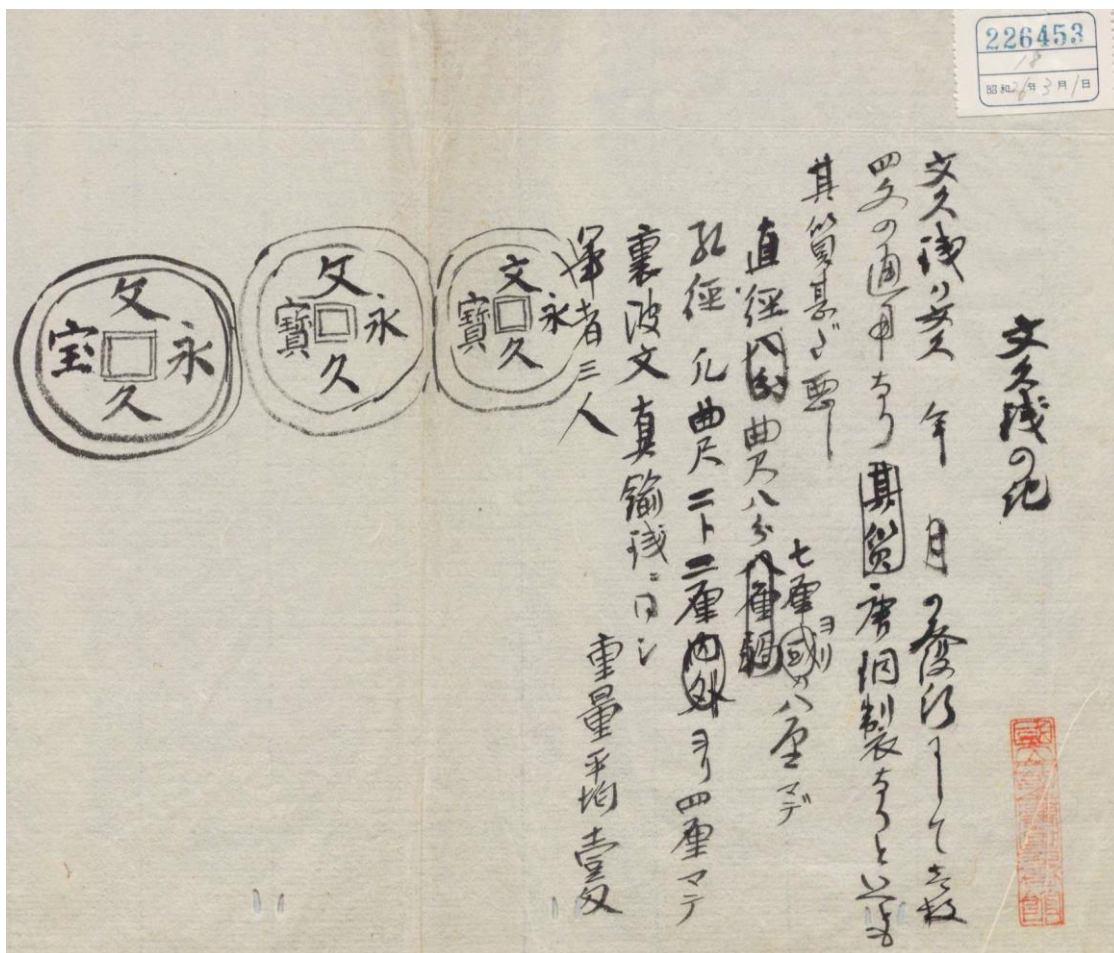 226453
18
昭和26年3月1日
文久銭の记
文久銭ハ文久 年 月の發行にして壱枚
四文の通用なり 其質唐銅製なりと雖も
其質甚だ悪し
直徑 八分 曲尺八分八厘弱
七厘ヨリ 八厘マデ
孔徑 凡曲尺二卜二厘内外ヨリ四厘マテ
裏波文 真鍮銭ニ同シ
重量平均壹匁
筆者三人
文永久寳
文永久寳
文永久宝